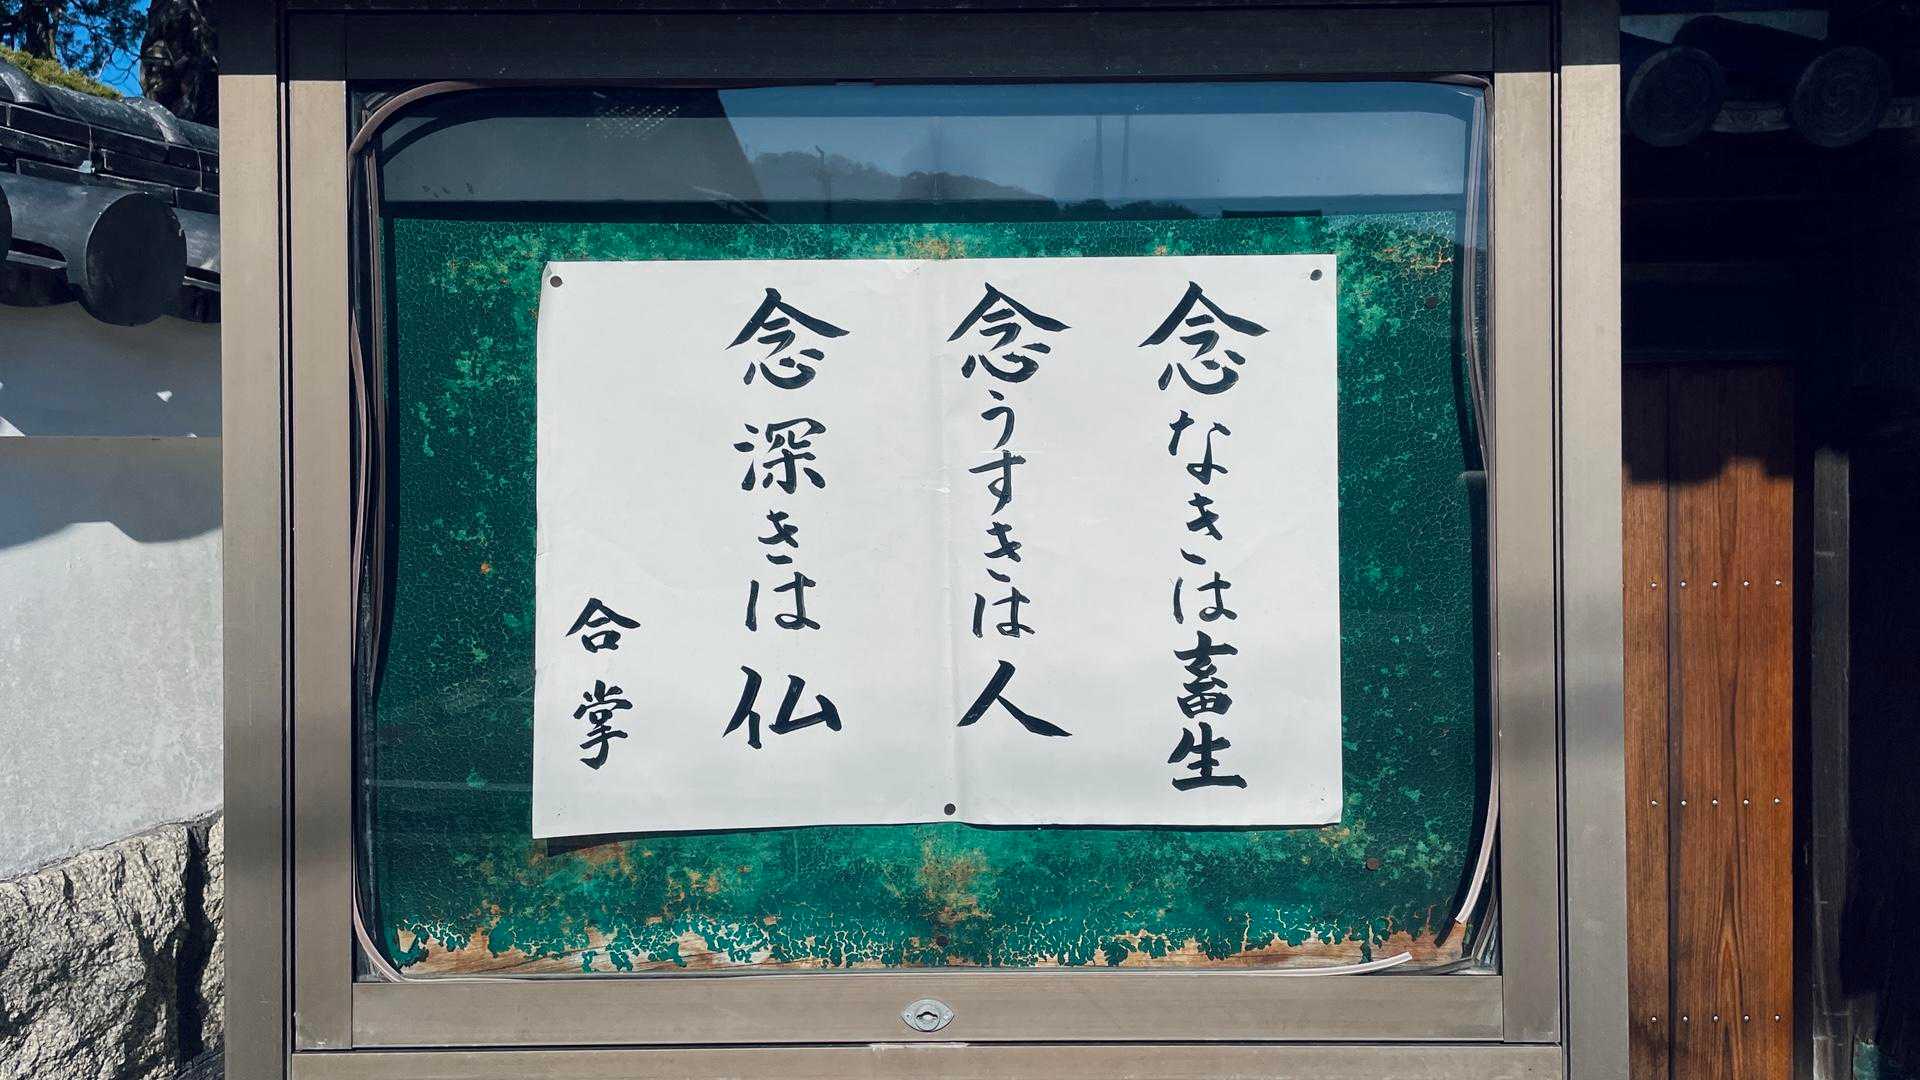 念なきは畜生
念うすきは人
念深きは仏
合掌